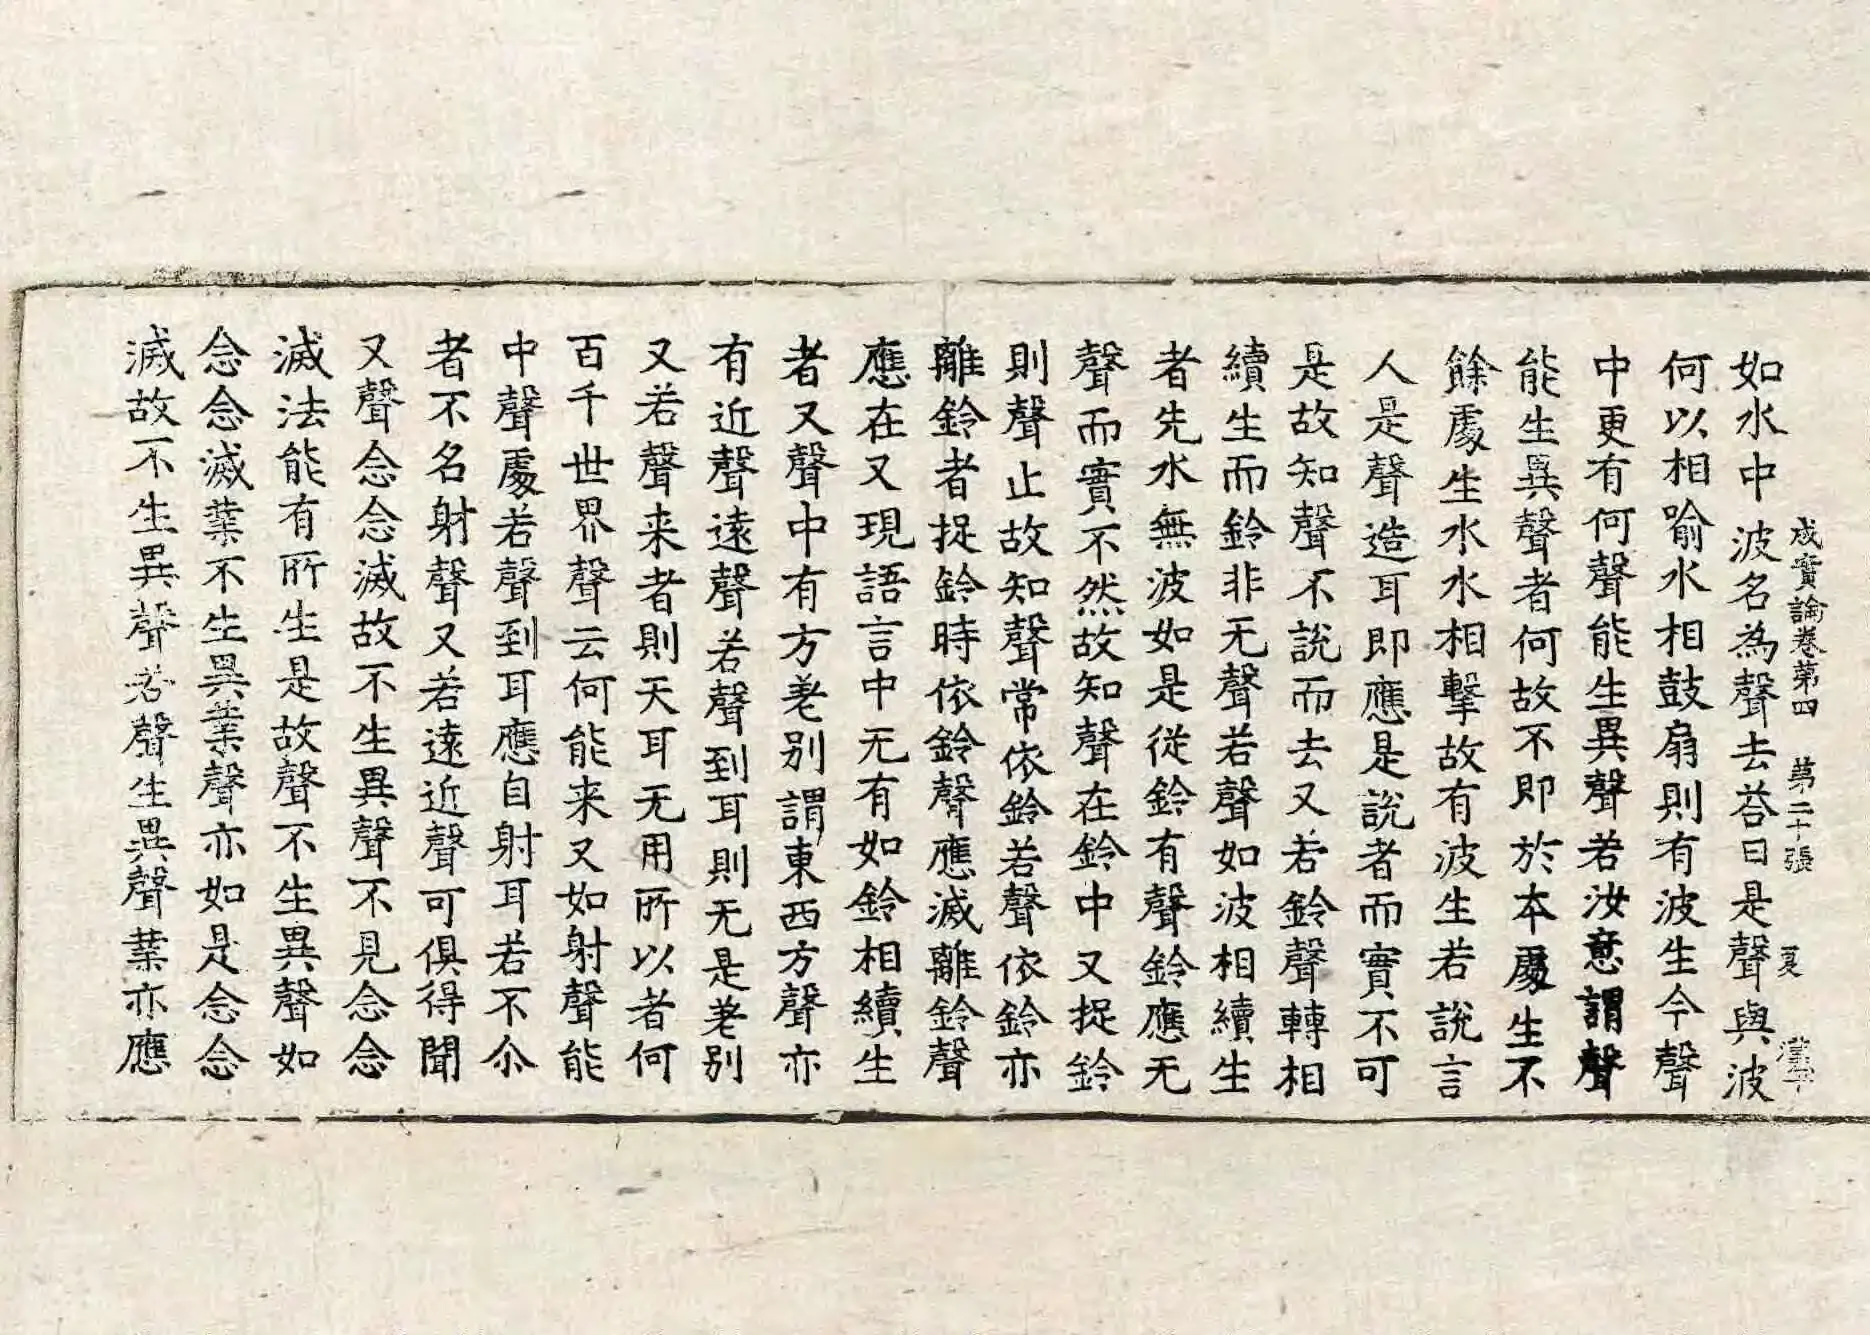 成實論卷第四　第二十張　夏　漢守
如水中波名為聲去荅曰是聲與波
何以相喻水相鼓扇則有波生今聲
中更有何聲能生異聲若汝意謂聲
能生異聲者何故不即於本處生不
餘處生水水相擊故有波生若說言
人是聲造耳即應是說者而實不可
是故知聲不說而去又若鈴聲轉相
續生而鈴非无聲若聲如波相續生
者先水無波如是從鈴有聲鈴應无
聲而實不然故知聲在鈴中又捉鈴
則聲止故知聲常依鈴若聲依鈴亦
離鈴者捉鈴時依鈴聲應滅離鈴聲
應在又現語言中无有如鈴相續生
者又聲中有方差別謂東西方聲亦
有近聲遠聲若聲到耳則无是差別
又若聲来者則天耳无用所以者何
百千世界聲云何能来又如射聲能
中聲處若聲到耳應自射耳若不尒
者不名射聲又若遠近聲可俱得聞
又聲念念滅故不生異聲不見念念
滅法能有所生是故聲不生異聲如
念念滅業不生異業聲亦如是念念
滅故不生異聲若聲生異聲業亦應